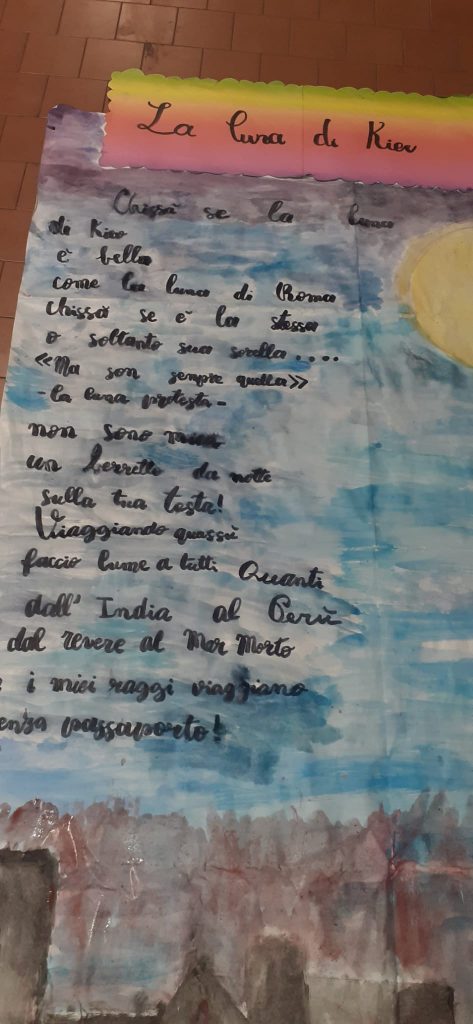 La luna di Kiev
Chissà se la luna
di Kiev
è bella
come la luna di Roma
chissà se è la stessa
o soltanto sua sorella....
«Ma son sempre quella»
- la luna protesta -
non sono mica
un berretto da notte
sulla tua testa!
Viaggiando quassù
faccio lume a tutti Quanti
dall' India al Perù
dal Tevere al Mar Morto
e i miei raggi viaggiano
senza passaporto!